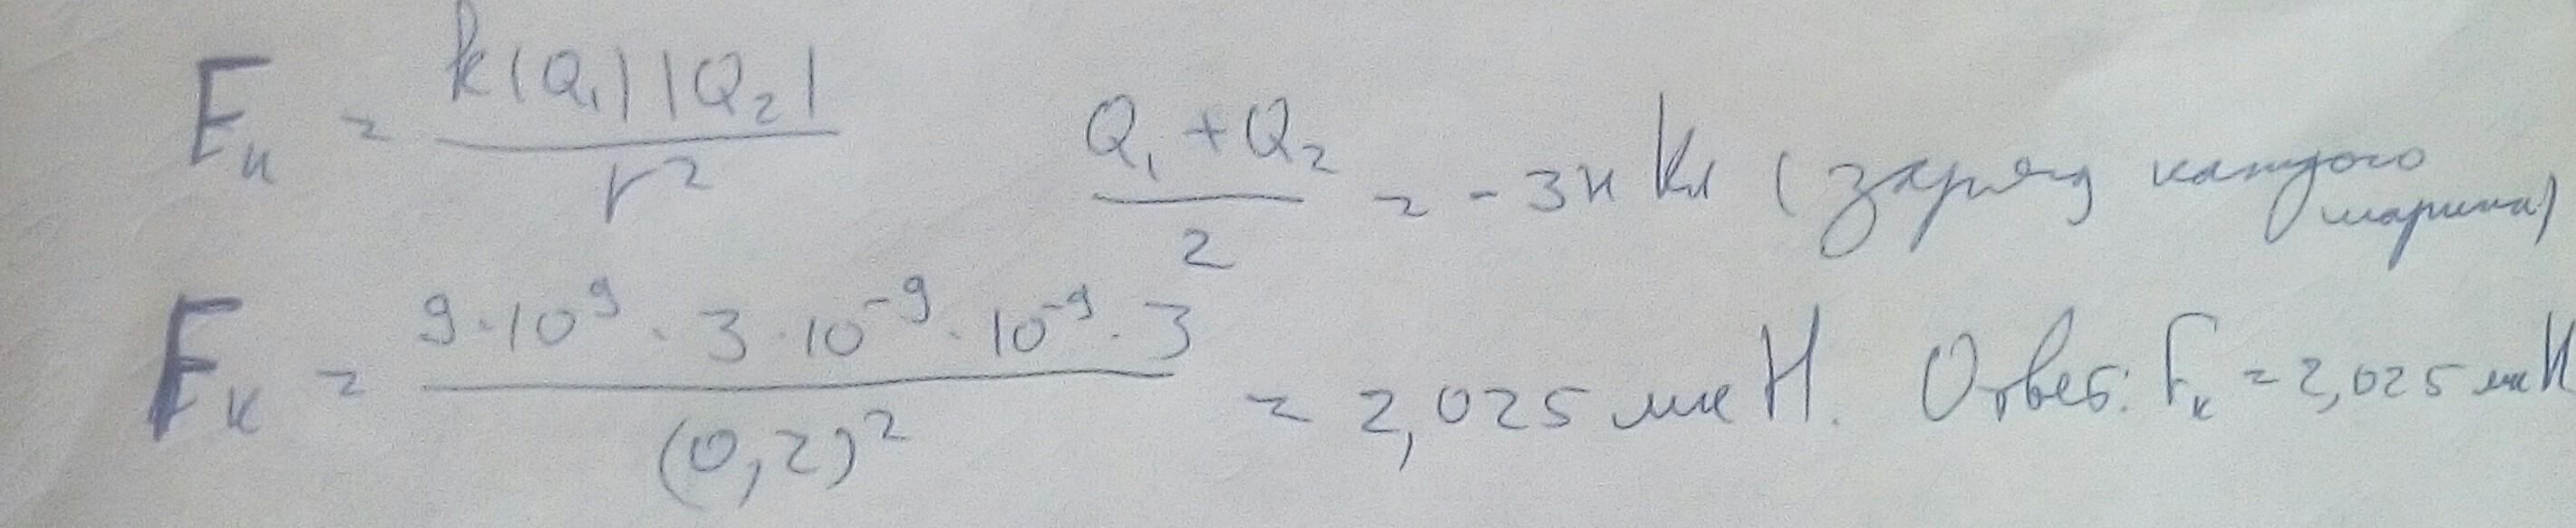 Fк = k|Q₁||Q₂| / r²   (Q₁ + Q₂) / 2 = -3 н Кл (заряд каждого шарика)
Fк = 9·10⁹ · 3·10⁻⁹ · 10⁻⁹ · 3 / (0,2)² = 2,025 мк Н. Ответ: Fк = 2,025 мк Н